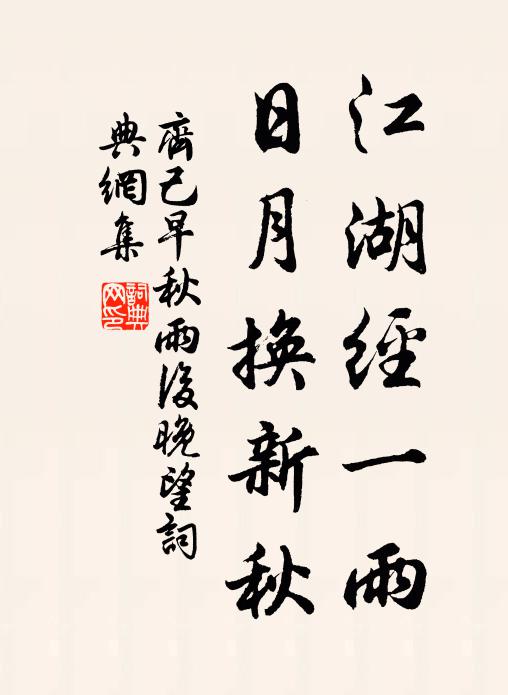 江湖經一雨
日月換新秋
齊己早秋雨後晚望詞
典網集
詞典網印